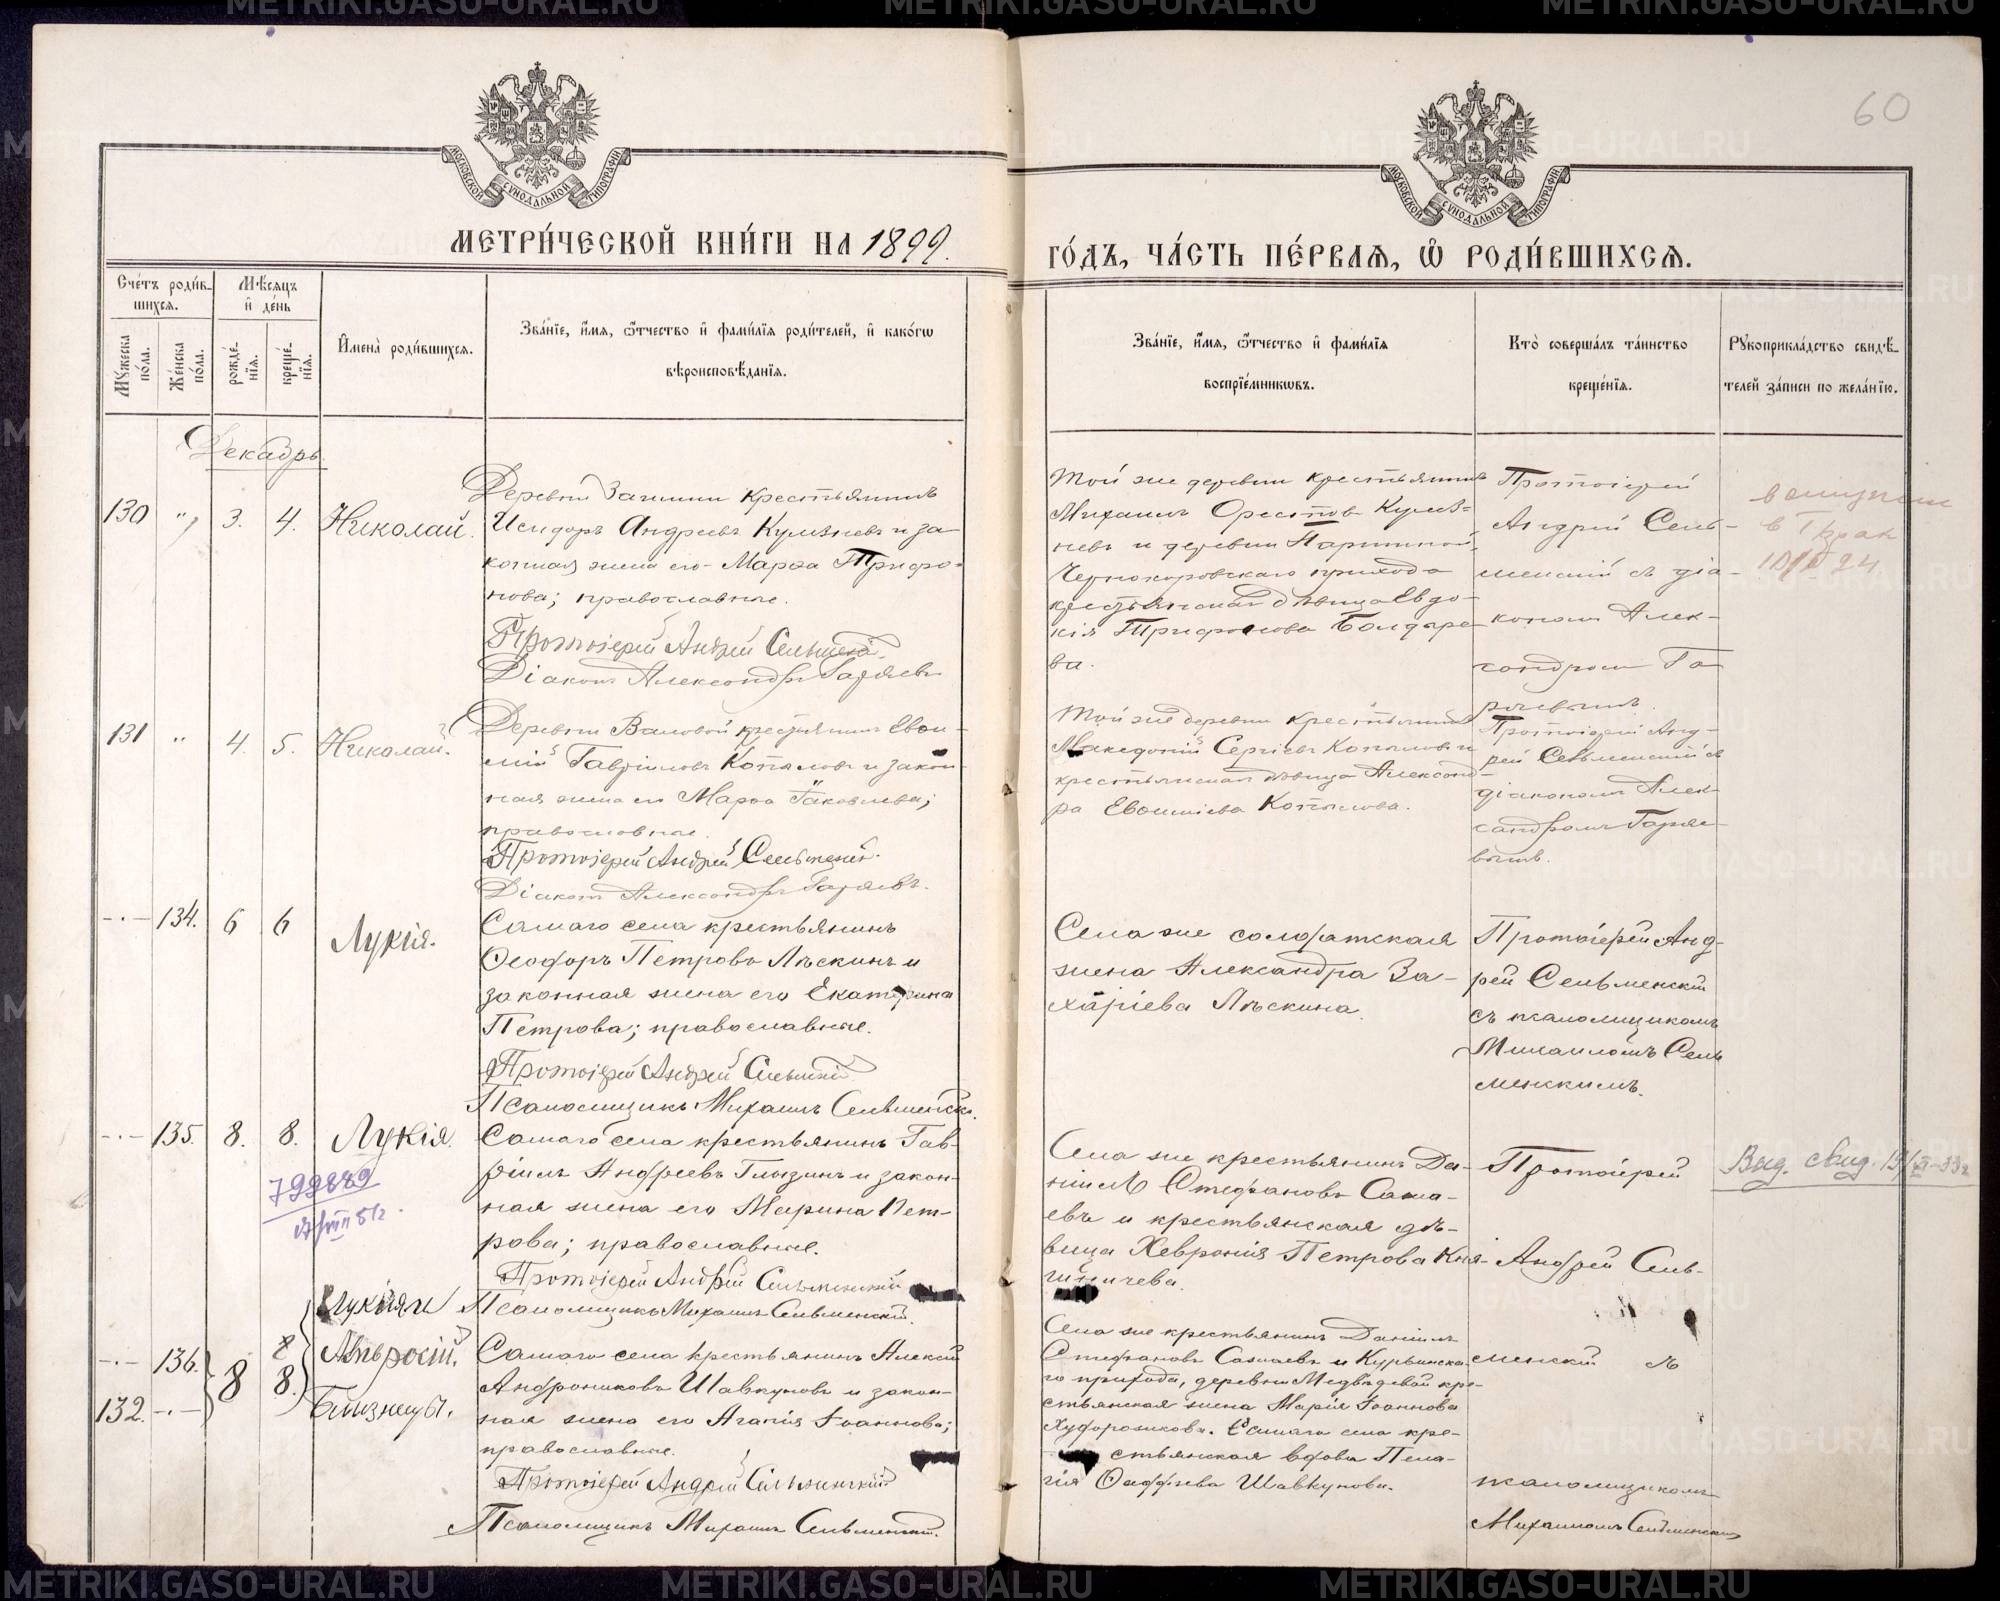 МЕТРИ́ЧЕСКОЙ КНИ́ГИ НА 1899.
ГО́ДЪ, ЧА́СТЬ ПЕ́РВАЯ, Ѡ РОДИ́ВШИХСЯ.
60
Сче́тъ роди́в-
шихся.
Мѣ́сяцъ
и҆ де́нь
Мꙋ́жеска
по́ла.
Же́нска
по́ла.
рожде́-
нїя.
креще́-
нїя.
И҆мена̀ роди́вшихся.
Зва́нїе, и҆́мя, ѻ҆́тчество и҆ фами́лїя роди́телей, и҆ како́гѡ
вѣроисповѣ́данїя.
Зва́нїе, и҆́мя, ѻ҆́тчество и҆ фами́лїя
воспрїе́мникѡвъ.
Кто̀ соверша́лъ та́инство
креще́нїя.
Рꙋкоприкла́дство свидѣ́-
телей за́писи по жела́нїю.
Декабрь
130 " 3. 4. Николай.
Деревни крестьянинъ
Исидоръ Андреевъ и за-
конная жена его Марѳа Трифо-
нова; православные.
Протоіерей Андрей Сельменскій.
Діаконъ Александръ Гаряевъ
Той же деревни крестьянинъ
Михаилъ Орестовъ
и деревни
прихода
крестьянская дѣвица Евдо-
кія Трифонова Бондаре-
ва.
Протоіерей
Андрей Сель-
менскій съ діа-
кономъ Алек-
сандромъ Га-
ряевымъ.
131 " 4. 5. Николай.
Деревни крестьянинъ Евѳи-
мій Гавріиловъ Копыловъ и закон-
ная жена его Марѳа Іаковлева;
православные.
Протоіерей Андрей Сельменскій.
Діаконъ Александръ Гаряевъ.
Той же деревни крестьянинъ
Македоній Сергіевъ Копыловъ и
крестьянская дѣвица Александ-
ра Евѳиміева Копылова.
Протоіерей Анд-
рей Сельменскій съ
діакономъ Алек-
сандромъ Гаряе-
вымъ.
-.- 134. 6 6 Лукія.
Самаго села крестьянинъ
Ѳеодоръ Петровъ Лѣскинъ и
законная жена его Екатерина
Петрова; православные.
Протоіерей Андрей Сельменскій
Псаломщикъ Михаилъ Сельменскій.
Села же солдатская
жена Александра За-
харіева Лѣскина.
Протоіерей Анд-
рей Сельменскій
съ псаломщикомъ
Михаиломъ Сель
менскимъ.
-.- 135. 8. 8. Лукія.
799889
17/VIII 51г.
Самаго села крестьянинъ Гав-
ріилъ Андреевъ Глызинъ и закон-
ная жена его Марина Пет-
рова; православные.
Протоіерей Андрей Сельменскій
Псаломщикъ Михаилъ Сельменскій.
Села же крестьянинъ Да-
ніилъ Стефановъ
и крестьянская дѣ-
вица Хевронія Петрова
Протоіерей
Андрей Сель-
Выд. свид.
-.- 136. 8 8 8.
132. -.-
Лукія и
Амвросій.
Близнецы.
Самаго села крестьянинъ Алексій
Андрониковъ Шавкуновъ и закон-
ная жена его Агапія Іоаннова;
православные.
Протоіерей Андрей Сельменскій
Псаломщикъ Михаилъ Сельменскій.
Села же крестьянинъ Даніилъ
Стефановъ и Курьинска-
го прихода, деревни Медвѣдевой кре-
стьянская жена Марія Іоаннова
Худорожкова. Самаго села кре-
стьянская вдова Пела-
гія Шавкунова.
менскій съ
псаломщикомъ
Михаиломъ Сельменскимъ
МОСКОВСКОЙ СѴНОДАЛЬНОЙ ТИПОГРАФІИ
МОСКОВСКОЙ СѴНОДАЛЬНОЙ ТИПОГРАФІИ
METRIKI.GASO-URAL.RU